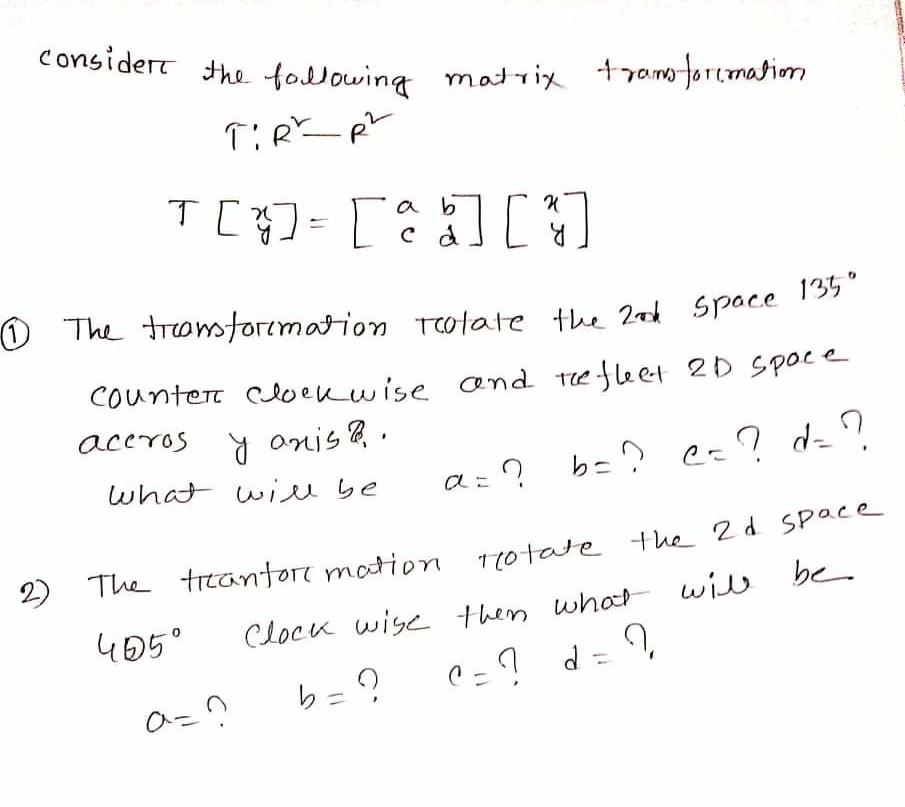 consider the following matrix transformation
T: R² — R²
T [x y] = [a b c d] [x y]
① The transformation rotate the 2nd space 135°
counter clockwise and reflect 2D space
accros y axis?.
what will be a = ? b = ? c = ? d = ?
2) The tranformation rotate the 2d space
405° clock wise then what will be
a = ? b = ? c = ? d = ?